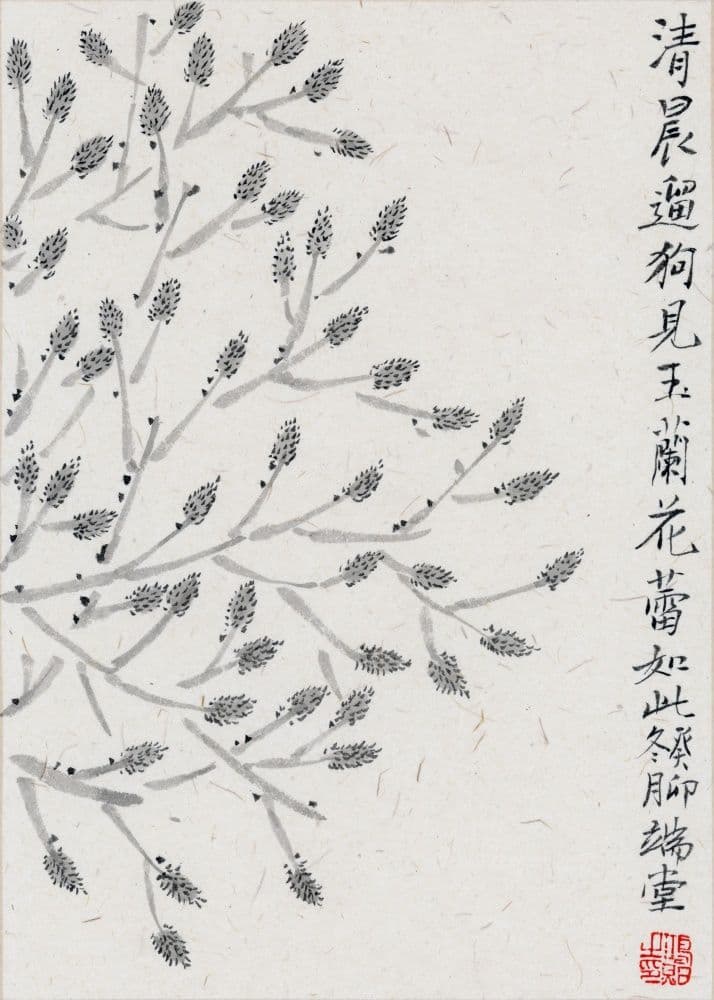 清晨遛狗見玉蘭花蕾如此癸卯冬月端堂